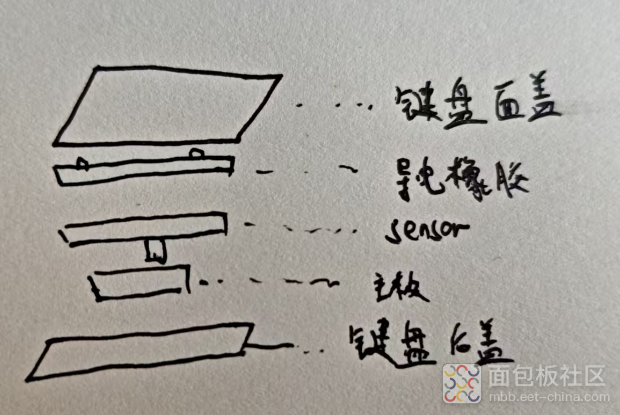 键盘面盖
导电橡胶
sensor
主板
键盘后盖
面包板社区
mbb.eet-china.com